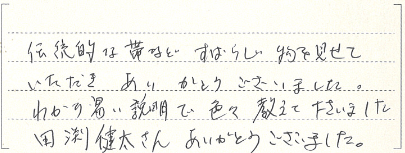 伝統的な帯など すばらしい物を見せて
いただき ありがとうございました。
わかり易い説明で 色々 教えて下さいました
田渕健太さん ありがとうございました。